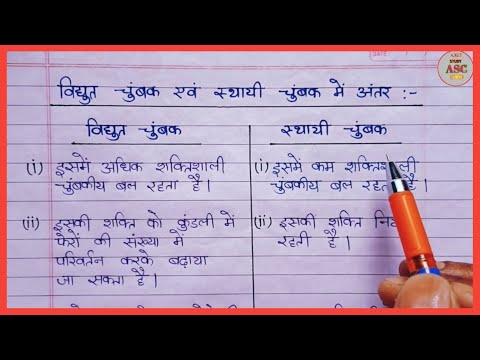 विद्युत चुंबक एवं स्थायी चुंबक में अंतर :-
विद्युत चुंबक
(i) इसमें अधिक शक्तिशाली
चुंबकीय बल रहता है।
(ii) इसकी शक्ति को कुंडली में
फेरों की संख्या में
परिवर्तन करके बढ़ाया
जा सकता है।
स्थायी चुंबक
(i) इसमें कम शक्तिशाली
चुंबकीय बल रहता है।
(ii) इसकी शक्ति
रहती है।
STUDY
ASC
DATE